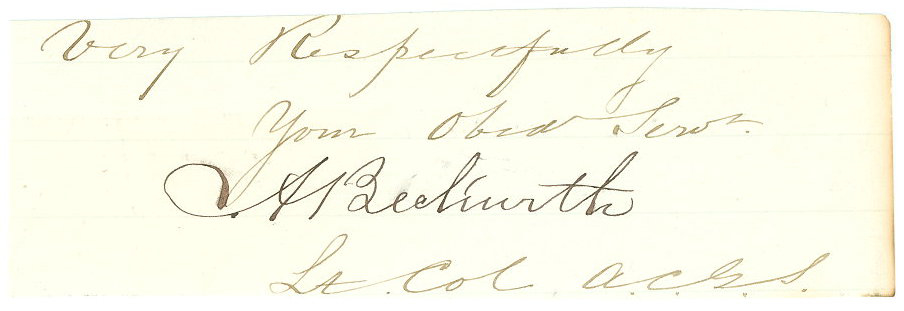 Very Respectfully
Your Obed Servt.
A Beckwith
Lt. Col A.C.G.S.